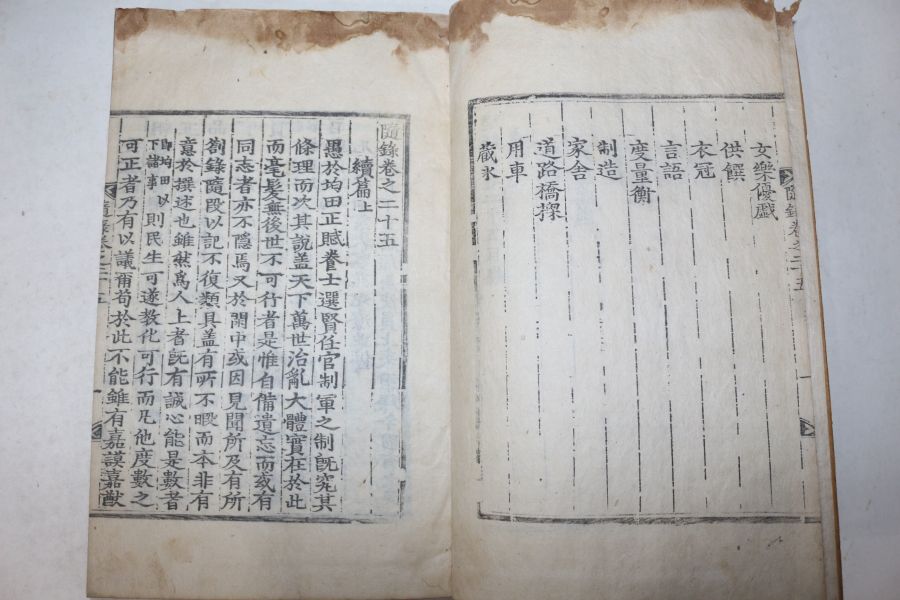 女樂優戲
供饌
衣冠
言語
度量衡
制造
家舍
道路橋梁
用車
藏氷
隨錄卷之二十五
續篇上
愚於均田正賦養士選賢任官制軍之制旣究其
條理而次其說盖天下萬世治亂大體實在於此
而毫髮無後世不可行者是惟自備遺忘而或有
同志者亦不隱焉又於閑中或因見聞所及有所
劄錄隨叚以記不復類具盖有所不暇而本非有
意於撰述也雖然爲人上者旣有誠心能是數者
自均田以下諸事則民生可遂敎化可行而凡他度數之
可正者乃有以議爾苟於此不能雖有嘉謨嘉猷
隨錄卷之二十五
一